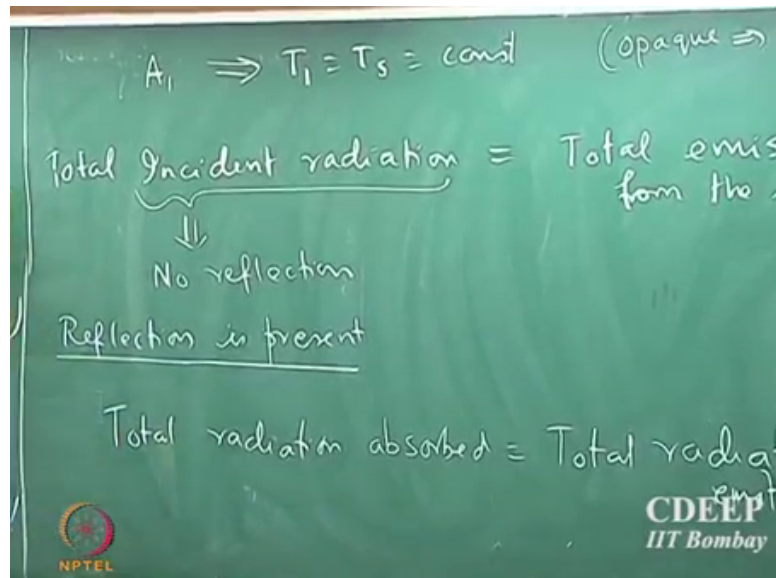 A₁ ⇒ T₁ = Tₛ = const (opaque ⇒
Total Incident radiation = Total emis
from the
⇓
No reflection
Reflection is present
Total radiation absorbed = Total radia
emit
CDEEP
IIT Bombay
NPTEL